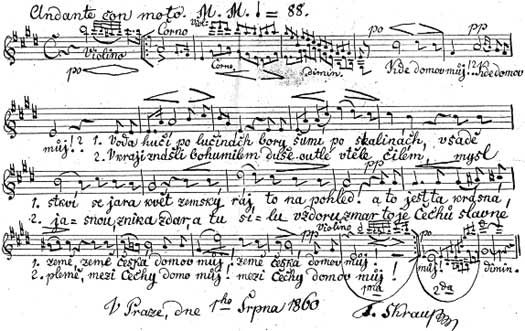 Andante con moto. M. M. ♩ = 88.
Corno Viol:
Violino
po po pp
Corno dimin. Kde domov můj!? Kde domov
můj!? 1. Voda hučí po lučinách bory šumí po skalinách, v sadě
2. V kraji znáš-li bohumilém duše outlé v těle čilém, mysl
1. stkví se jara květ zemský ráj to na pohled! a to jest ta krásná,
2. ja= snou, znik a zdar, a tu si= lu vzdoru zmar to je Čechů slavné
Violine pp po
1. země, země česká domov můj! země česká domov můj!
2. plémě, mezi Čechy domov můj! mezi Čechy domov můj!
můj! dimin.
1ma 2da
V Praze, dne 1ho Srpna 1860